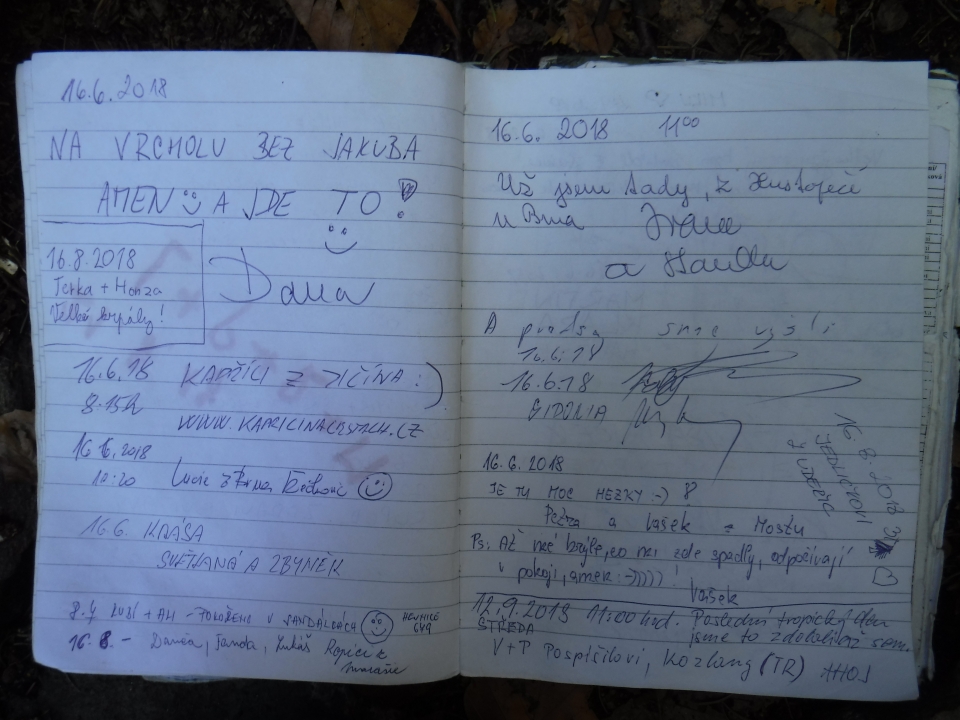 16.6.2018
NA VRCHOLU BEZ JAKUBA
AMEN A JDE TO!
Dana
16.8.2018
Terka + Honza
Velké
16.6.18 KAPŘÍCI Z JIČÍNA :)
8.15h
WWW.KAPRICINACESTACH.CZ
16.6.2018
10:20 Lucie
16.6. KRÁSA
SVĚTLANA A ZBYNĚK
8.7 + V SANDÁLCÁCH
16.8. - Danča, Janda, Lukáš
16.6. 2018 1100
Už jsem tady, z Hustopečí
u Brna
a
A pravda sme vyšli
16.6.18
16.6.18
SIDONIA
16.6.2018
JE TU MOC HEZKY :-)
Petra a Vašek z Mostu
Ps: Ať mé brýle, co mi zde spadly, odpočívají
v pokoji, amen :-))))!
Vašek
16.8.2018
12.9.2018 11:00 hod. Poslední tropický den
STŘEDA jsme to zdolali až sem.
V+P Pospíšilovi, Kožlany (TR) AHOJ